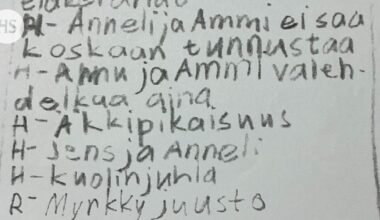 HS
H- Anneli ja Ammi ei saa
koskaan tunnustaa
H- Annu ja Ammi valeh-
delkaa aina
H- Äkkipikaisuus
H- Jens ja Anneli
H- kuolinjuhla
R- Myrkkyjuusto